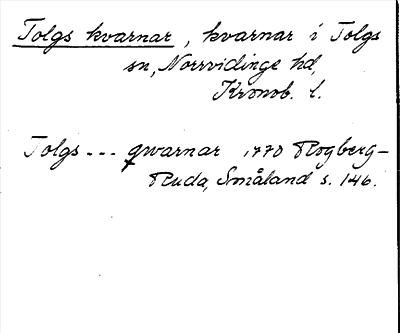 Tolgs kvarnar, kvarnar i Tolgs
sn, Norrvidinge hd,
Kronob. l.
Tolgs --- qwarnar 1770 Rogberg-
Ruda, Småland s. 146.